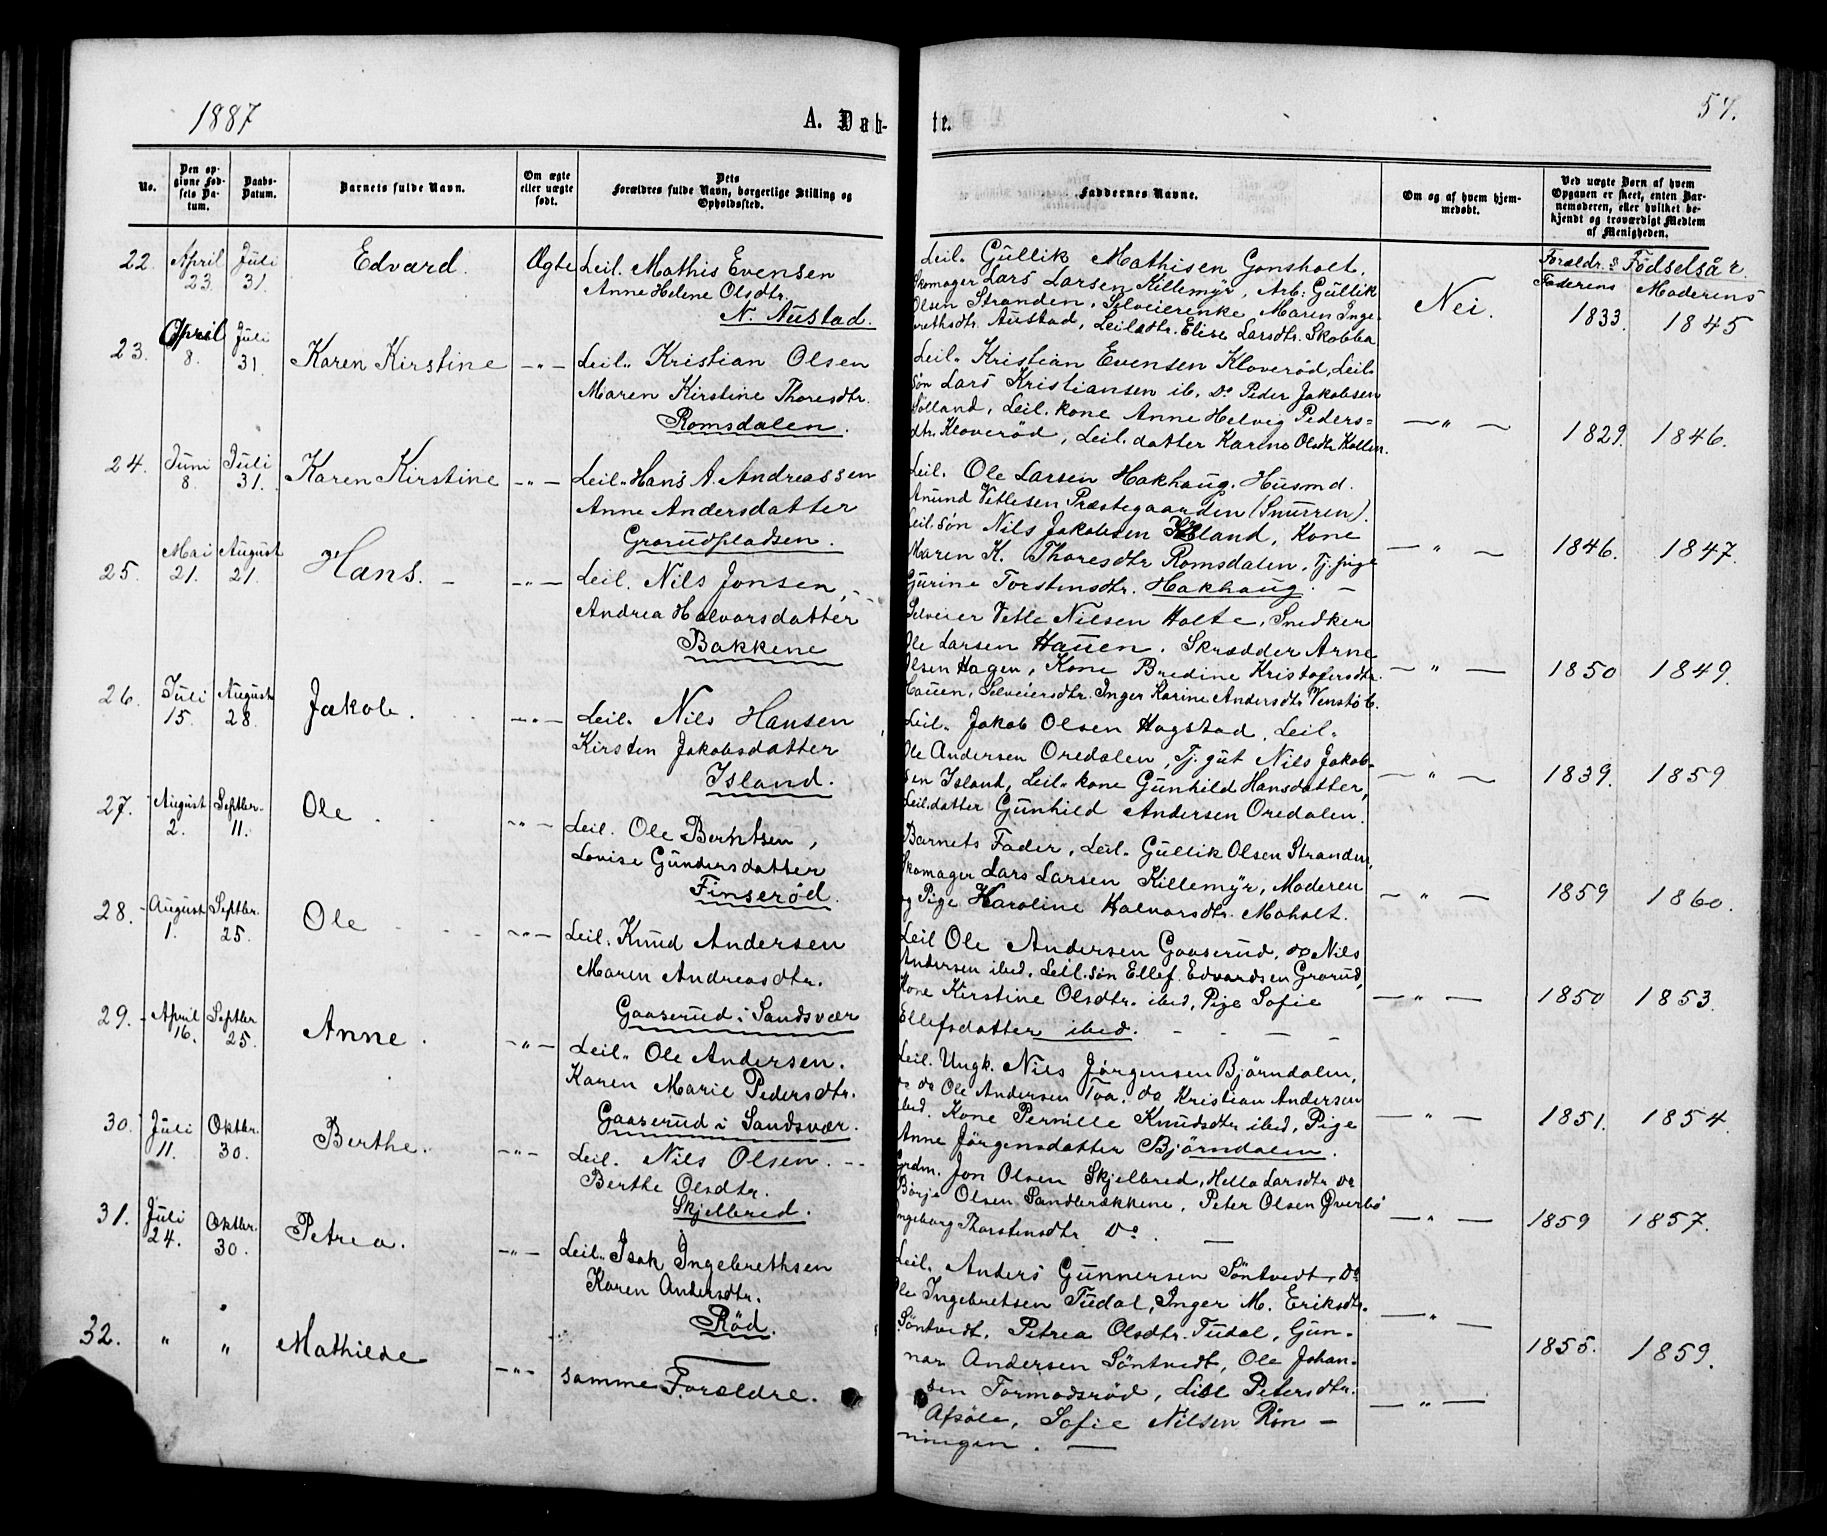 1887
A. Døb-
No.
Den op-
givne Fød-
sels Da-
tum.
Daabs-
Datum.
Barnets fulde Navn.
Om ægte
eller uægte
født.
Dets
Forældres fulde Navn, borgerlige Stilling og
Opholdssted.
22.
April
23.
Juli
31.
Edvard.
Ægte
Leil. Mathis Evensen
Anne Helene Olsdtr.
N. Austad.
23.
April
8.
Juli
31.
Karen Kirstine
—"—
Leil. Kristian Olsen
Maren Kirstine Thoresdtr.
Romsdalen.
24.
Juni
8.
Juli
31.
Karen Kirstine
—"—
Leil. Hans A. Andreassen
Anne Andersdatter
Grorudpladsen.
25.
Mai
21.
August
21.
Hans. —
—"—
Leil. Nils Jonsen,
Andrea Halvorsdatter
Bakkene
26.
Juli
15.
August
28.
Jakob.
—"—
Leil. Nils Hansen
Kirsten Jakobsdatter
Island.
27.
August
2.
Septbr.
11.
Ole
—"—
Leil. Ole Berntsen,
Lovise Gundersdatter
Finserød.
28.
August
1.
Septbr.
25.
Ole
—"—
Leil. Knud Andersen
Maren Andreasdtr.
Gaaserud i Sandsvær
29.
April
16.
Septbr
25.
Anne.
—"—
Leil. Ole Andersen.
Karen Marie Pedersdtr.
Gaaserud i Sandsvær.
30.
Juli
11.
Oktbr.
30.
Berthe.
—"—
Leil. Nils Olsen.
Berthe Olsdtr.
Skjelbred.
31.
Juli
24.
Oktbr.
30.
Petrea.
—"—
Leil. Isak Ingebrethsen
Karen Andersdtr.
Rød.
32.
"
"
Mathilde
—"—
samme Forældre.
57.
te.
Faddernes Navne.
Om og af hvem hjem-
medøbt.
Ved uægte Børn af hvem
Opgaven er skeet, enten Bar-
nemoderen, eller hvilket be-
kjendt og troværdigt Medlem
af Menigheden.
Forældr.s Fødselsår.
Faderens Moderens
Leil. Gullik Mathisen Gonsholt,
Skomager Lars Larsen Killemyr, Arb. Gullik
Olsen Stranden, Selveierenke Maren Inge-
brethsdtr. Austad, Leilsdtr. Elise Larsdtr. Skobba
Nei.
1833. 1845
Leil. Kristian Evensen Kloverød, Leil.
søn Lars Kristiansen ib. Do Peder Jakobsen
Sølland, Leil. kone Anne Helvig Peders=
dtr. Kloverød, Leil. datter Karine Olsdtr Kollen.
—"—
1829. 1846.
Leil. Ole Larsen Hakhaug, Husmd.
Anund Vetlesen Præstegaarden (Snurren).
Leil. søn Nils Jakobsen Island, Kone
Maren K. Thoresdtr Romsdalen, Tj. pige
Gurine Torstensdtr. Hakhaug. —
—"—
1846. 1847.
Selveier Vetle Nilsen Holte, Snedker
Ole Larsen Hauen. Skrædder Arne
Olsen Hagen, Kone Bredine Kristofersdtr.
Hauen, Selveiersdtr. Inger Karine Andersdtr Venstøb.
—"—
1850 1849.
Leil. Jakob Olsen Hogstad, Leil.
Ole Andersen Oredalen, Tj. gut Nils Jakob-
sen Island, Leil. kone Gunhild Hansdatter,
Leil.datter Gunhild Andersen Oredalen.
—"—
1839. 1859
Barnets Fader, Leil. Gullik Olsen Stranden,
Skomager Lars Larsen Killemyr, Moderen
og Pige Karoline Halvorsdtr. Moholt.
—"—
1859 1860.
Leil Ole Andersen Gaaserud, do Nils
Andersen ibid, Leil. søn Ellef Edvardsen Grorud,
Kone Kirstine Olsdtr. ibid, Pige Sofie
Ellefsdatter ibid.
—"—
1850 1853.
Leil. Ungk. Nils Jørgensen Bjørndalen,
do do Ole Andersen Toa, do Kristian Andersen
ibid. Kone Pernille Knudsdtr ibid, Pige
Anne Jørgensdatter Bjørndalen.
—"—
1851. 1854.
Grdm. Jon Olsen Skjelbred, Hella Larsdtr do
Børje Olsen Sandbrækkene, Peter Olsen Øverbø
Ingeborg Thorstensdtr Do. —
—"—
1859 1857.
Leil. Anders Gunnersen Søntvedt, Do
Ole Ingebretsen Tudal, Inger M. Eriksdtr.
Søntvedt, Petrea Olsdtr. Tudal, Gun-
nar Andersen Søntvedt, Ole Johan-
sen Tormodsrød, Lise Petersdtr.
Afsøle, Sofie Nilsen Røn-
ningen. —
—"—
1855. 1859.
—"—